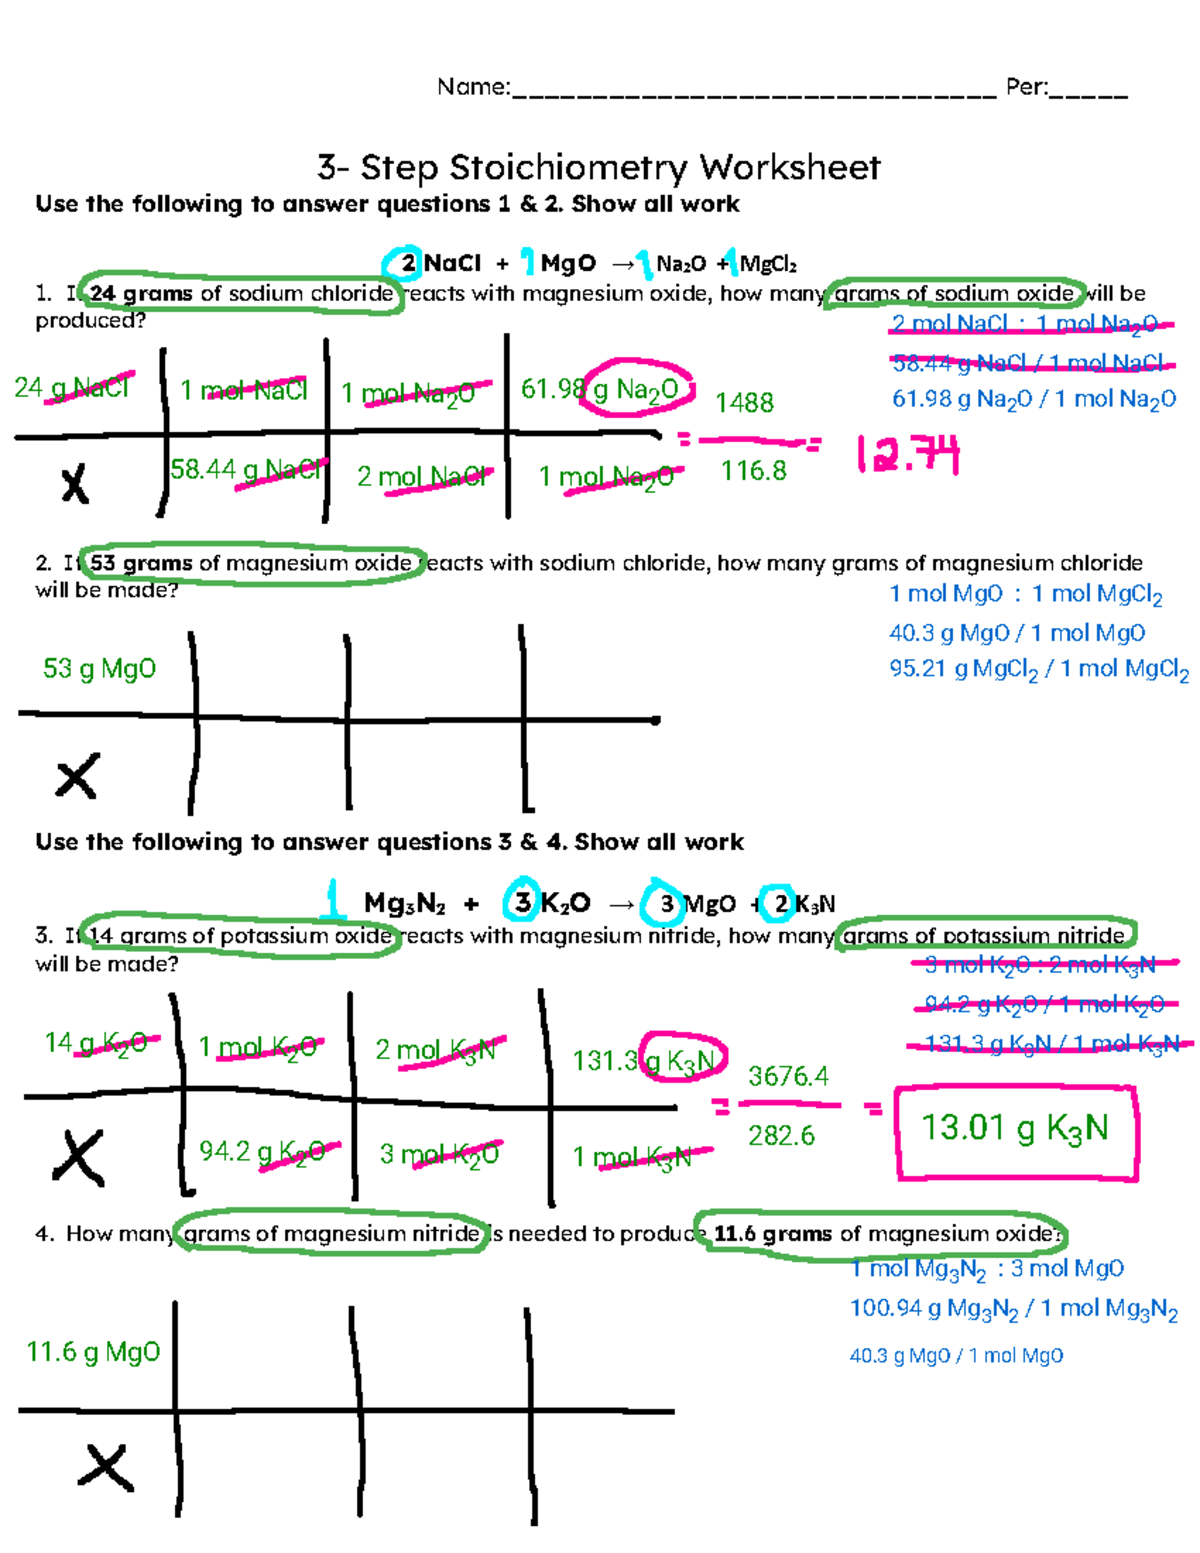 Name:______________________________ Per:_____
3- Step Stoichiometry Worksheet
Use the following to answer questions 1 & 2. Show all work
2 NaCl + 1 MgO → 1 Na₂O + 1 MgCl₂
1. If 24 grams of sodium chloride reacts with magnesium oxide, how many grams of sodium oxide will be
produced?
2 mol NaCl : 1 mol Na₂O
58.44 g NaCl / 1 mol NaCl
61.98 g Na₂O / 1 mol Na₂O
24 g NaCl 1 mol NaCl 1 mol Na₂O 61.98 g Na₂O 1488
= = 12.74
X 58.44 g NaCl 2 mol NaCl 1 mol Na₂O 116.8
2. If 53 grams of magnesium oxide reacts with sodium chloride, how many grams of magnesium chloride
will be made?
1 mol MgO : 1 mol MgCl₂
40.3 g MgO / 1 mol MgO
95.21 g MgCl₂ / 1 mol MgCl₂
53 g MgO
X
Use the following to answer questions 3 & 4. Show all work
1 Mg₃N₂ + 3 K₂O → 3 MgO + 2 K₃N
3. If 14 grams of potassium oxide reacts with magnesium nitride, how many grams of potassium nitride
will be made?
3 mol K₂O : 2 mol K₃N
94.2 g K₂O / 1 mol K₂O
131.3 g K₃N / 1 mol K₃N
14 g K₂O 1 mol K₂O 2 mol K₃N 131.3 g K₃N 3676.4
= = 13.01 g K₃N
X 94.2 g K₂O 3 mol K₂O 1 mol K₃N 282.6
4. How many grams of magnesium nitride is needed to produce 11.6 grams of magnesium oxide?
1 mol Mg₃N₂ : 3 mol MgO
100.94 g Mg₃N₂ / 1 mol Mg₃N₂
40.3 g MgO / 1 mol MgO
11.6 g MgO
X